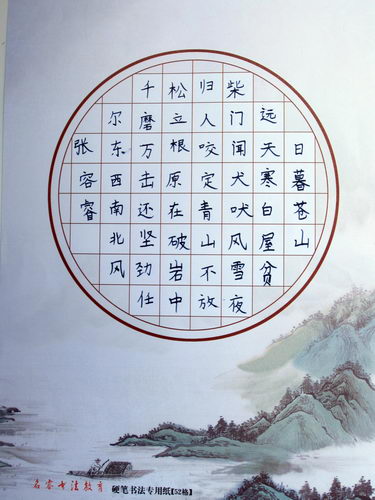 日暮苍山
远天寒白屋贫
柴门闻犬吠风雪夜
归人咬定青山不放
松立根原在破岩中
千磨万击还坚劲任
尔东西南北风
张容睿
书法教育
硬笔书法专用纸【52格】